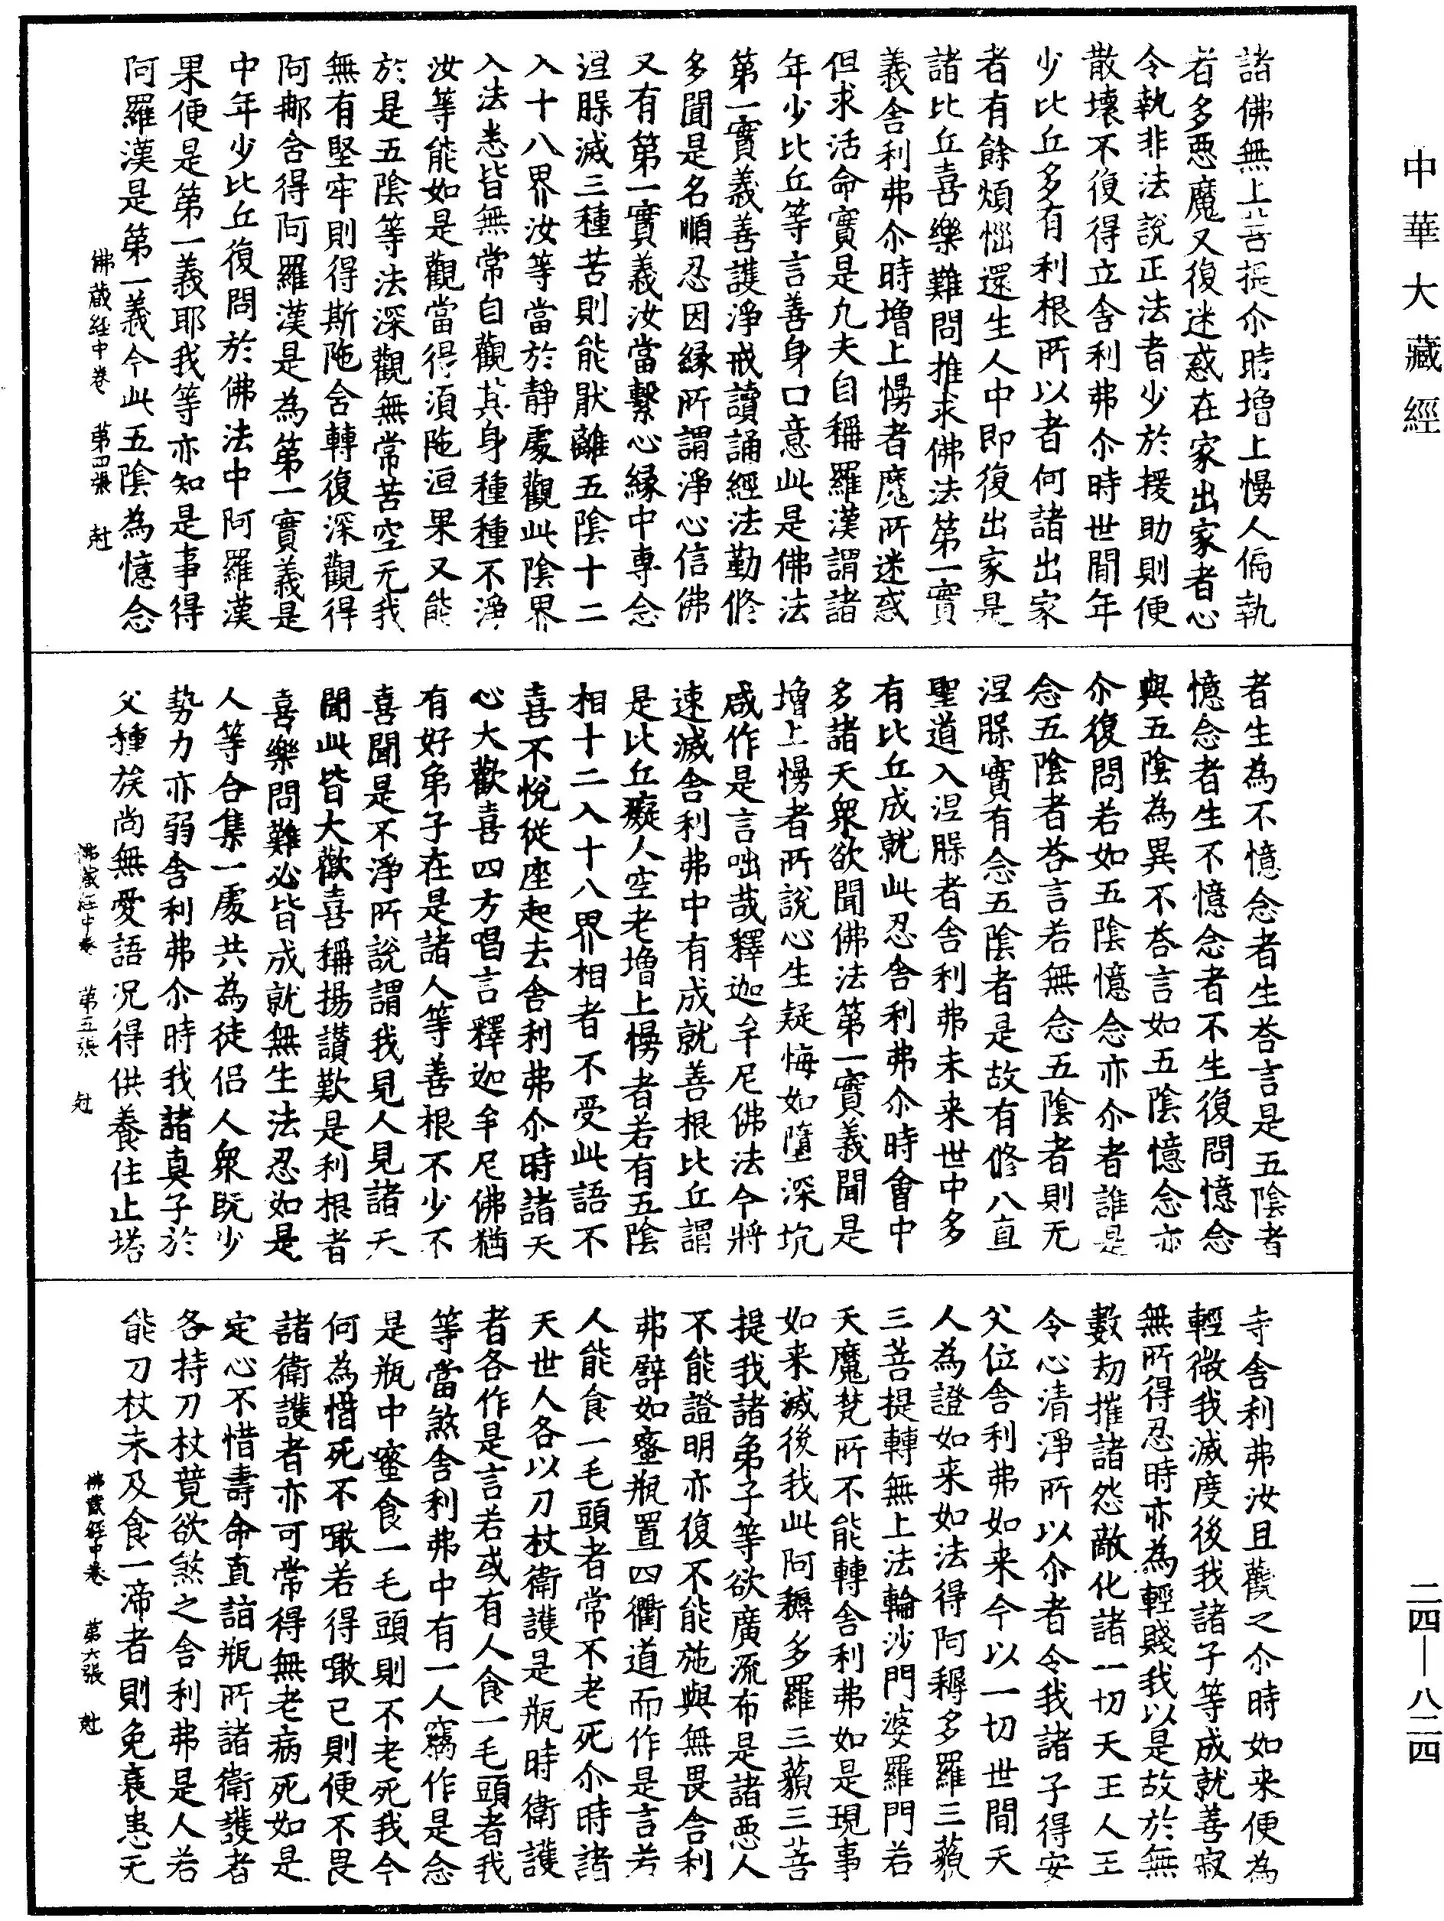 中華大藏經
諸佛無上菩提尒時增上慢人偏執
者多惡魔又復迷惑在家出家者心
令執非法說正法者少於援助則便
散壞不復得立舍利弗尒時世間年
少比丘多有利根所以者何諸出家
者有餘煩惱還生人中即復出家是
諸比丘喜樂難問推求佛法第一實
義舍利弗尒時增上慢者魔所迷惑
但求活命實是凡夫自稱羅漢謂諸
年少比丘等言善身口意此是佛法
第一實義善護淨戒讀誦經法勤修
多聞是名順忍因緣所謂淨心信佛
又有第一實義汝當繫心緣中專念
涅膟滅三種苦則能猒離五陰十二
入十八界汝等當於靜處觀此陰界
入法悉皆無常自觀其身種種不淨
汝等能如是觀當得湏陁洹果又能
於是五陰等法深觀無常苦空无我
無有堅牢則得斯陁舍轉復深觀得
阿𨚗含得阿羅漢是為第一實義是
中年少比丘復問於佛法中阿羅漢
果便是第一義耶我等亦知是事得
阿羅漢是第一義今此五陰為憶念
佛藏經中卷 第四張 尅
者生為不憶念者生荅言是五陰者
憶念者生不憶念者不生復問憶念
與五陰為異不荅言如五陰憶念亦
尒復問若如五陰憶念亦尒者誰是
念五陰者荅言若無念五陰者則无
涅膟實有念五陰者是故有修八直
聖道入涅膟者舍利弗未来世中多
有比丘成就此忍舍利弗尒時會中
多諸天衆欲聞佛法第一實義聞是
增上慢者所說心生疑悔如墮深坑
咸作是言咄哉釋迦牟尼佛法今將
速滅舍利弗中有成就善根比丘謂
是比丘癡人空老增上慢者若有五陰
相十二入十八界相者不受此語不
喜不悅從座起去舍利弗尒時諸天
心大歡喜四方唱言釋迦牟尼佛猶
有好弟子在是諸人等善根不少不
喜聞是不淨所說謂我見人見諸天
聞此皆大歡喜稱揚讃歎是利根者
喜樂問難必皆成就無生法忍如是
人等合集一處共為徒侣人衆既少
勢力亦弱舍利弗尒時我諸真子於
父種族尚無愛語況得供養住止塔
佛藏經中卷 第五張 尅
寺舍利弗汝且觀之尒時如来便為
輕微我滅度後我諸子等成就善寂
無所得忍時亦為輕賤我以是故於無
數劫摧諸怨敵化諸一切天王人王
令心清淨所以尒者令我諸子得安
父位舍利弗如来今以一切世間天
人為證如来如法得阿耨多羅三藐
三菩提轉無上法輪沙門婆羅門若
天魔梵所不能轉舍利弗如是現事
如来滅後我此阿耨多羅三藐三菩
提我諸弟子等欲廣流布是諸惡人
不能證明亦復不能施與無畏舍利
弗譬如蜜瓶置四衢道而作是言若
人能食一毛頭者常不老死尒時諸
天世人各以刀杖衛護是瓶時衛護
者各作是言若或有人食一毛頭者我
等當煞舍利弗中有一人竊作是念
是瓶中蜜食一毛頭則不老死我今
何為惜死不噉若得噉已則便不畏
諸衛護者亦可常得無老病死如是
定心不惜壽命直詣瓶所諸衛護者
各持刀杖竟欲煞之舍利弗是人若
能刀杖未及食一渧者則免衰患无
佛藏經中卷 第六張 尅
二四—八二四